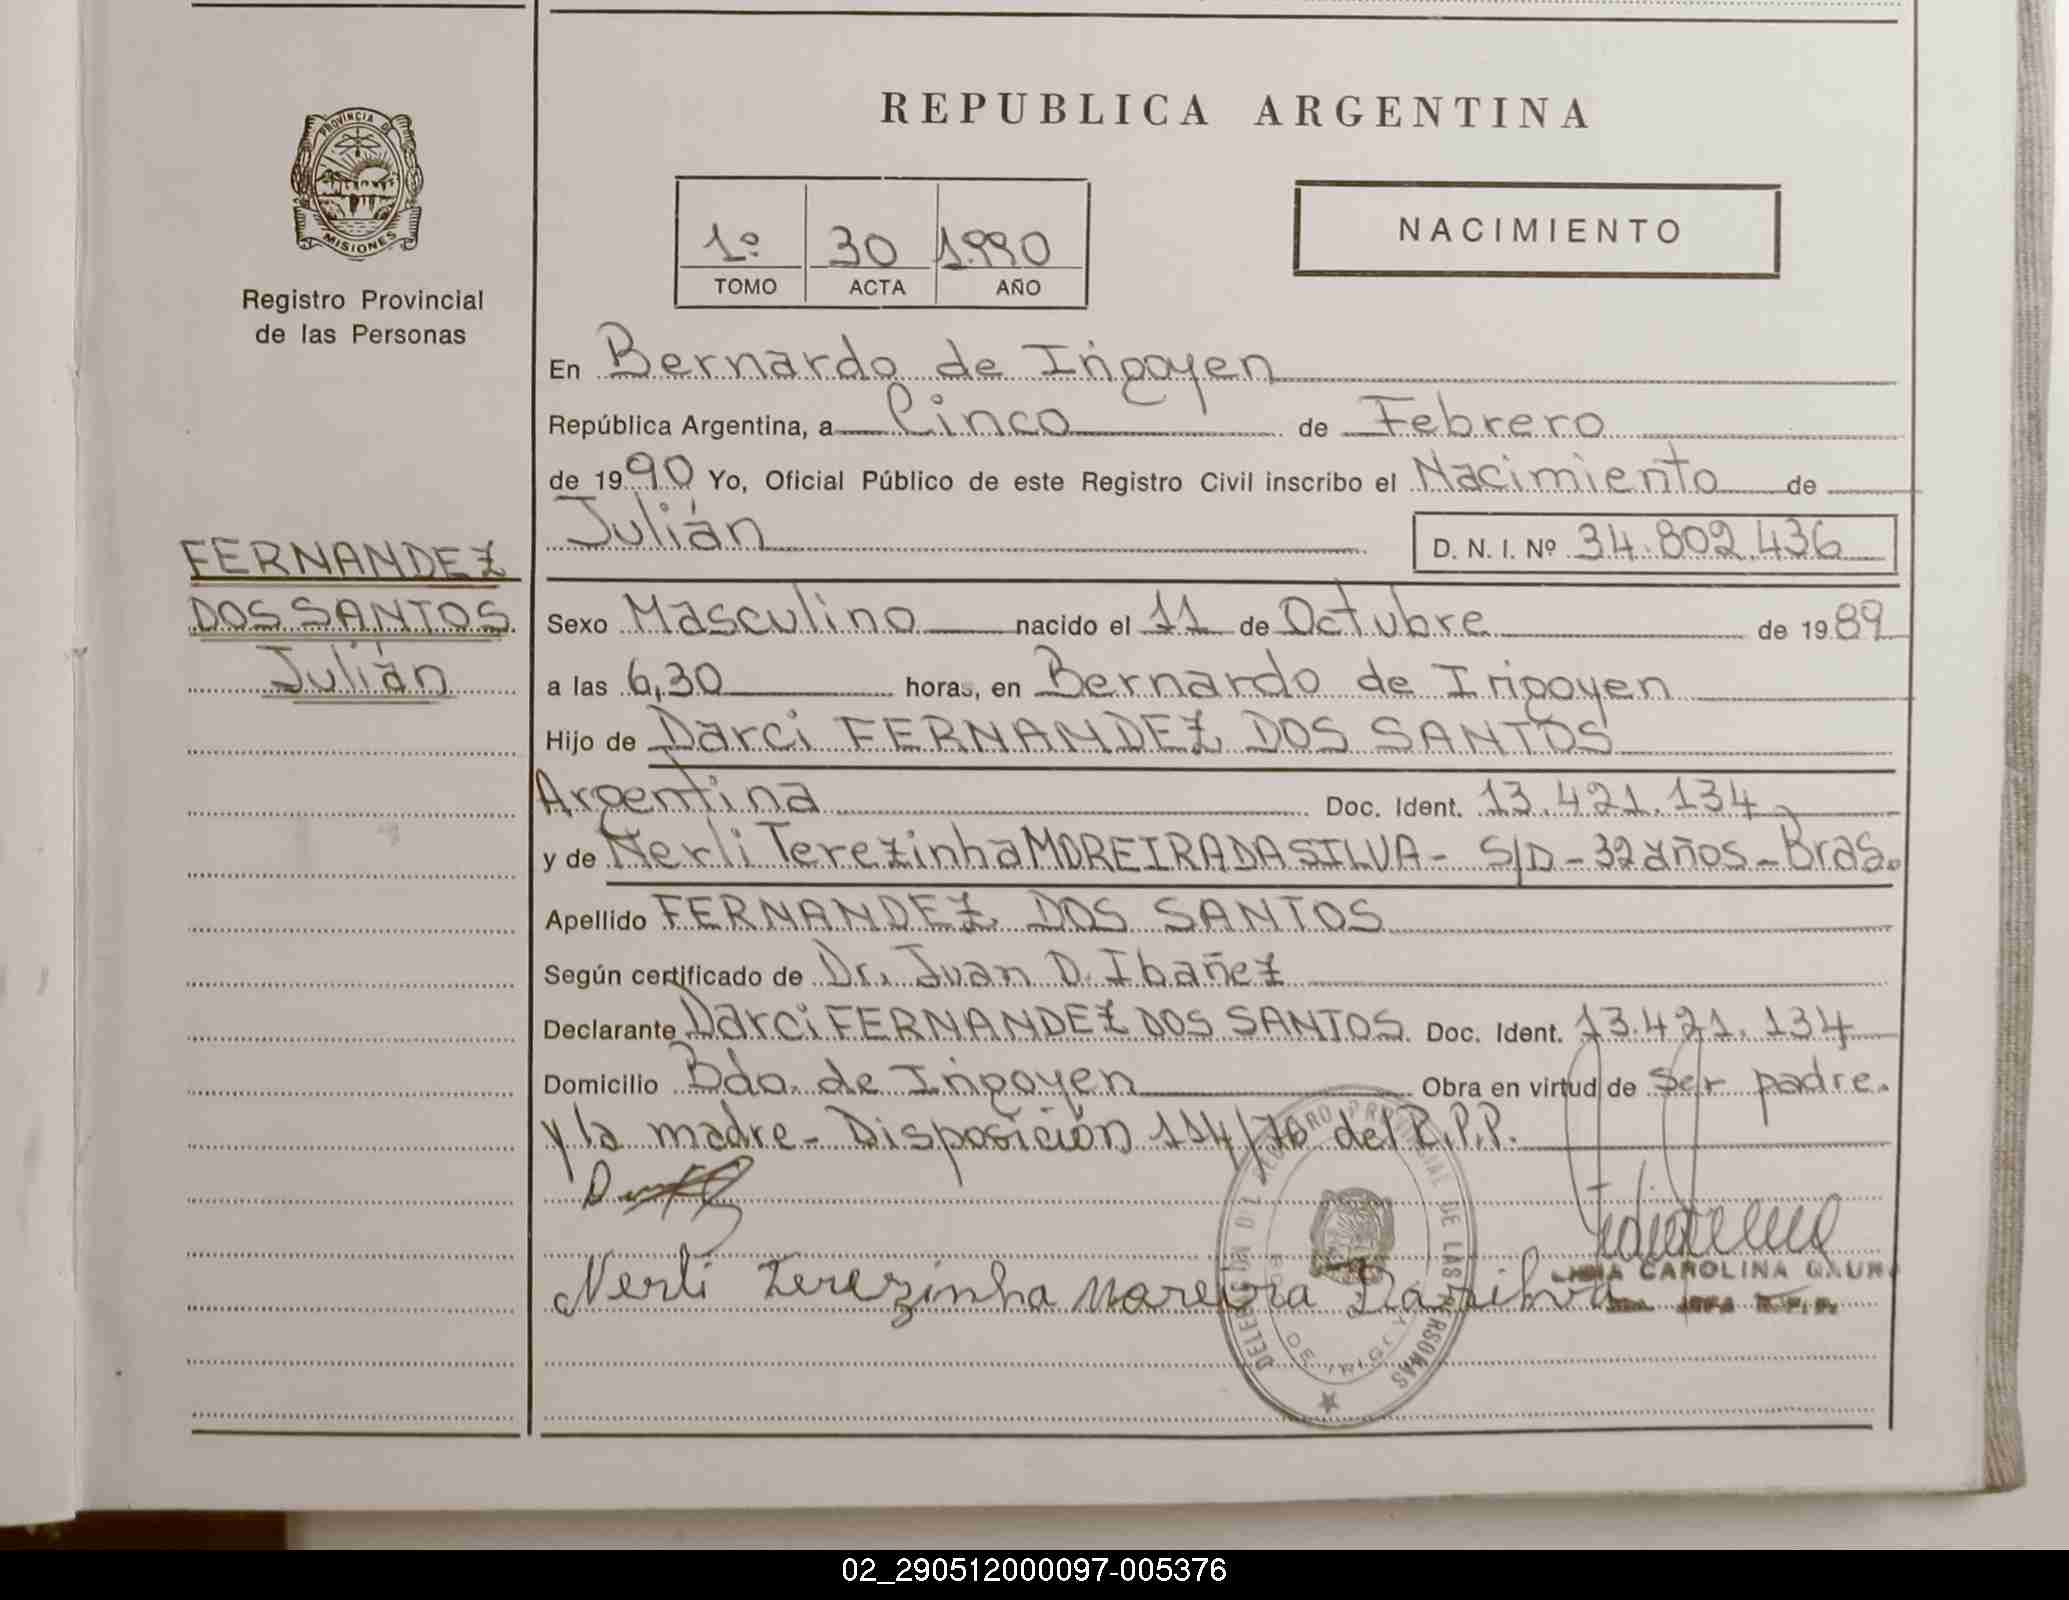 PROVINCIA DE
MISIONES
Registro Provincial
de las Personas
FERNANDEZ
DOS SANTOS
Julián
REPUBLICA ARGENTINA
1º 30 1.990
TOMO ACTA AÑO
NACIMIENTO
En Bernardo de Irigoyen
República Argentina, a Cinco de Febrero
de 1990 Yo, Oficial Público de este Registro Civil inscribo el Nacimiento de
Julián D. N. I. Nº 34.802.436
Sexo Masculino nacido el 11 de Octubre de 1989
a las 6,30 horas, en Bernardo de Irigoyen
Hijo de Darci FERNANDEZ DOS SANTOS
Argentina Doc. Ident. 13.421.134
y de Nerli Terezinha MOREIRA DA SILVA - S/D - 32 años - Bras.
Apellido FERNANDEZ DOS SANTOS
Según certificado de Dr. Juan D. Ibañez
Declarante Darci FERNANDEZ DOS SANTOS Doc. Ident. 13.421.134
Domicilio Bdo. de Irigoyen Obra en virtud de ser padre.
y la madre - Disposición 114/76 del R.P.P.
Nerli Terezinha Moreira Da Silva
CAROLINA
DE LAS PERSONAS
DE IRIGOYEN
02_290512000097-005376